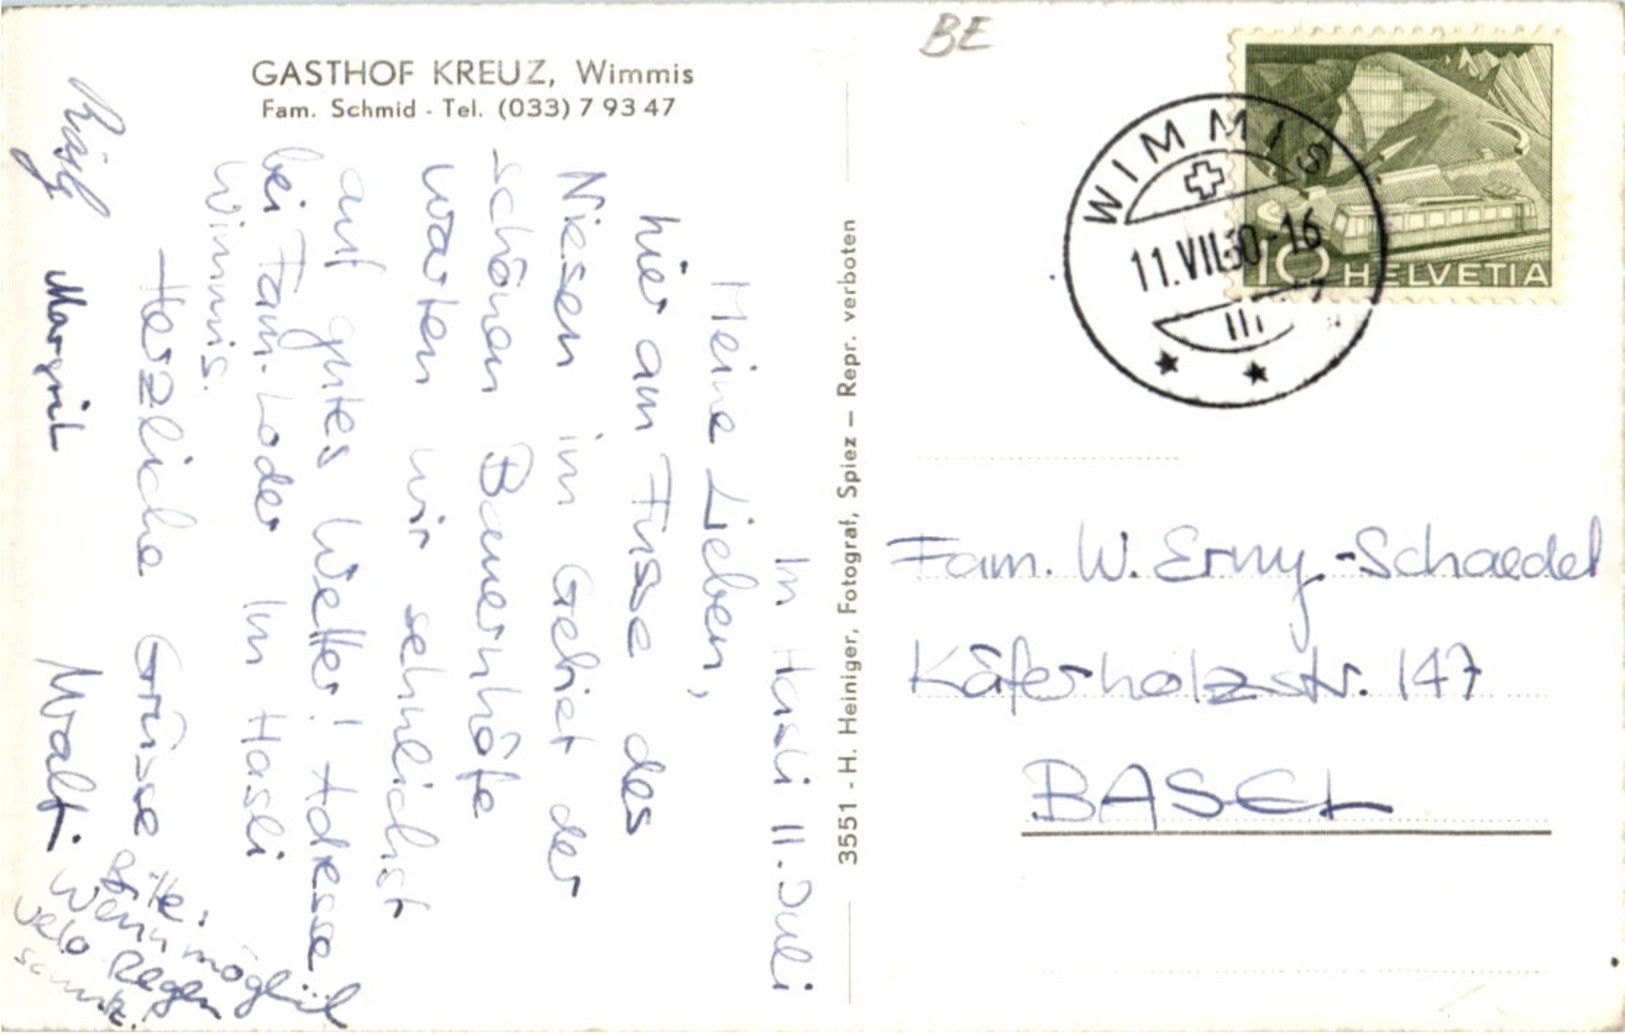 GASTHOF KREUZ, Wimmis
Fam. Schmid - Tel. (033) 7 93 47
In Hasli 11. Juli
Meine Lieben,
hier am Fusse des
Niesen im Gebiet der
schönen Bauernhöfe
warten wir sehnlichst
auf gutes Wetter! Adresse
bei Fam. Loder Im Hasli
Wimmis.
Herzliche Grüsse
Margrit Walti
Bitte:
Wenn möglich
Velo Regen
schutz.
3551 - H. Heiniger, Fotograf, Spiez – Repr. verboten
BE
WIMMIS
11.VII.60-16
10 HELVETIA
Fam. W. Erny-Schaedel
Käferholzstr. 147
BASEL